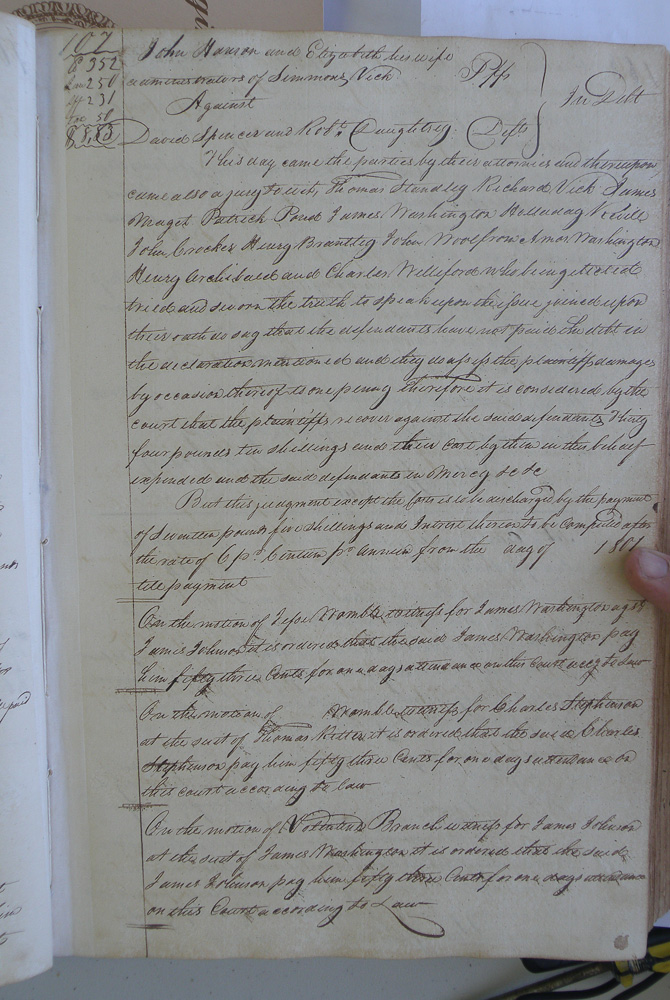 107
C 352
Law 250
Shff 231
Tax 50
8,83
John Hanson and Elizabeth his wife
administrators of Simmons Vick Plfs
Against In Debt
David Spencer and Robt. Daughtrey Defts
This day came the parties by their attornies and thereupon
came also a jury to wit, Thomas Standley Richard Vick James
Maget Patrick Pond James Washington Holladay Neville
John Crocker Henry Brantley John Woolfrom Amos Washington
Henry Archibald and Charles Williford who being elected
tried and sworn the truth to speak upon the issue joined upon
their oath do say that the defendants have not paid the debt in
the declaration mentioned and they do assess the plaintiffs damages
by occasion thereof to one penny therefore it is considered by the
court that the plaintiffs recover against the said defendants Thirty
four pounds ten shillings and their cost by them in this behalf
expended and the said defendants in Mercy &c &c
But this judgment except the costs is to be discharged by the payment
of Seventeen pounds five shillings and Interest thereon to be computed after
the rate of 6 pr. Centum pr. annum from the day of 1801
till payment
On the motion of Jesse Womble witness for James Washington agst
James Johnson it is ordered that the said James Washington pay
him fifty three Cents for one days attendance on this Court accg to Law
On the motion of Womble witness for Charles Stephenson
at the suit of Thomas it is ordered that the said Charles
Stephenson pay him fifty three Cents for one days attendance on
this court according to law
On the motion of Branch witness for James Johnson
at the suit of James Washington it is ordered that the said
James Johnson pay him fifty three Cents for one days attendance
on this Court according to Law